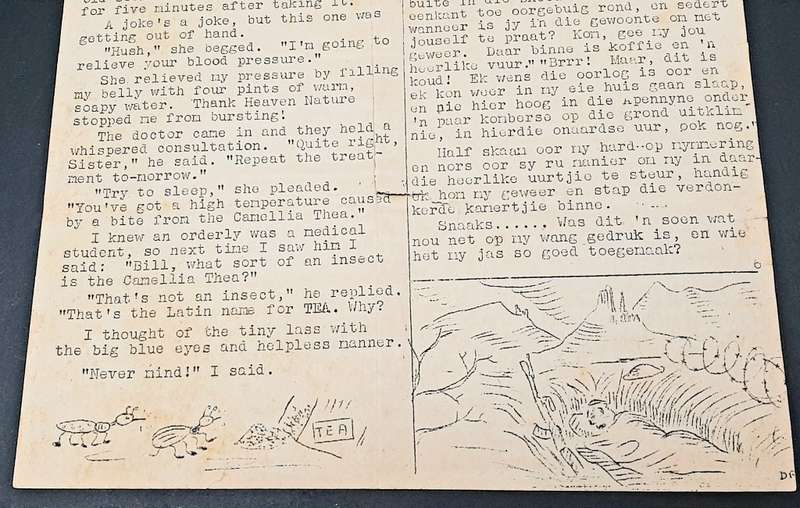 for five minutes after taking it.
A joke's a joke, but this one was
getting out of hand.
"Hush," she begged. "I'm going to
relieve your blood pressure."
She relieved my pressure by filling
my belly with four pints of warm,
soapy water. Thank Heaven Nature
stopped me from bursting!
The doctor came in and they held a
whispered consultation. "Quite right,
Sister," he said. "Repeat the treat-
ment to-morrow."
"Try to sleep," she pleaded.
"You've got a high temperature caused
by a bite from the Camellia Thea."
I knew an orderly was a medical
student, so next time I saw him I
said: "Bill, what sort of an insect
is the Camellia Thea?"
"That's not an insect," he replied.
"That's the Latin name for TEA. Why?
I thought of the tiny lass with
the big blue eyes and helpless manner.
"Never mind!" I said.
TEA
eenkant toe oorgebuig rond, en sedert
wanneer is jy in die gewoonte om met
jouself te praat? Kom, gee my jou
geweer. Daar binne is koffie en 'n
heerlike vuur." "Brrr! Maar, dit is
koud! Ek wens die oorlog is oor en
ek kon weer in my eie huis gaan slaap,
en nie hier hoog in die Apennyne onder
'n paar komberse op die grond uitklim
nie, in hierdie onaardse uur, ook nog."
Half skaam oor my hard-op mymmering
en nors oor sy ru manier om my in daar-
die heerlike uurtjie te steur, handig
ek hom my geweer en stap die verdon-
kerde kamertjie binne.
Snaaks...... Was dit 'n soen wat
nou net op my wang gedruk is, en wie
het my jas so goed toegemaak?